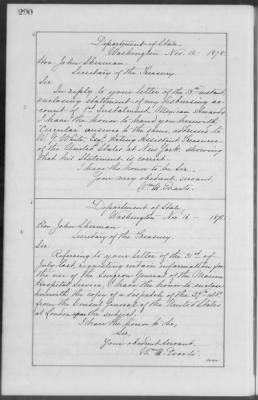 290
Department of State,
Washington Nov. 16 - 1878.
Hon. John Sherman.
Secretary of the Treasury.
Sir
In reply to your letter of the 13th instant,
enclosing statement of my disbursing ac-
count of 1st Instalment Mexican Awards
I have the honor to hand you herewith
Circular answer to the same, addressed to
White, Esq. Acting Assistant Treasurer
of the United States at New York, showing
that his statement is correct.
I have the honor to be Sir,
Your very obedient servant,
Wm. M. Evarts.
Department of State,
Washington Nov 16 - 1878
Hon John Sherman
Secretary of the Treasury.
Sir
Referring to your letter of the 31st of
July last, requesting certain information for
the use of the Surgeon General of the Marine
Hospital Service, I have the honor to enclose
herewith the copy of a despatch of the
from the Consul General of the United States
at London upon the subject.
I have the honor to be,
Sir,
Your obedient servant.
Wm. M. Evarts.